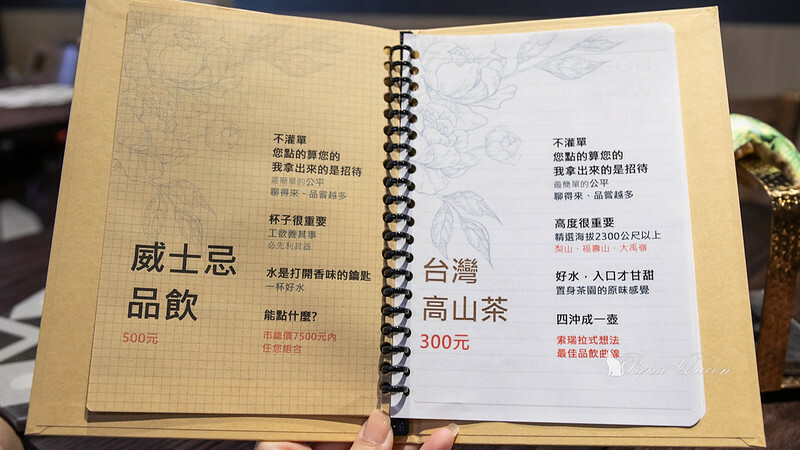 威士忌
品飲
500元
不灌單
您點的算您的
我拿出來的是招待
最簡單的公平
聊得來、品嘗越多
杯子很重要
工欲善其事
必先利其器
水是打開香味的鑰匙
一杯好水
能點什麼?
市總價7500元內
任您組合
台灣
高山茶
300元
不灌單
您點的算您的
我拿出來的是招待
最簡單的公平
聊得來、品嘗越多
高度很重要
精選海拔2300公尺以上
梨山、福壽山、大禹嶺
好水,入口才甘甜
置身茶園的原味感覺
四沖成一壺
索瑞拉式想法
最佳品飲曲線